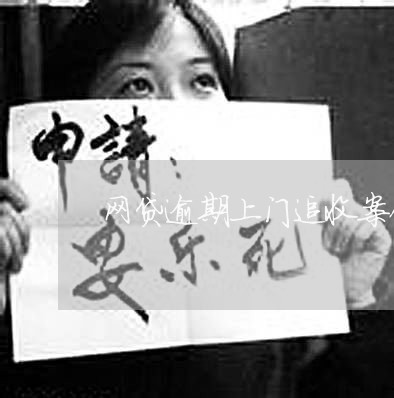 申請：
网贷逾期上门追收案
安乐死